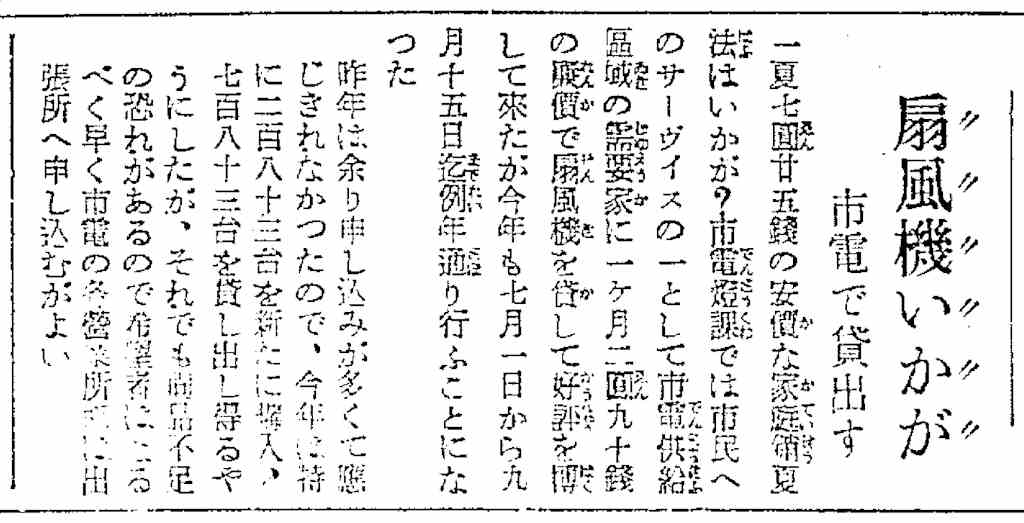 扇風機いかが
市電で貸出す
一夏七圓廿五錢の安價な家庭銷夏
法はいかが?市電燈課では市民へ
のサーヴイスの一として市電供給
區域の需要家に一ケ月二圓九十錢
の廉價で扇風機を貸して好評を博
して來たが今年も七月一日から九
月十五日迄例年通り行ふことにな
つた
昨年は余り申し込みが多くて應
じきれなかつたので、今年は特
に二百八十三台を新たに購入、
七百八十三台を貸し出し得るや
うにしたが、それでも商品不足
の恐れがあるので希望者はなる
べく早く市電の各營業所又は出
張所へ申し込むがよい